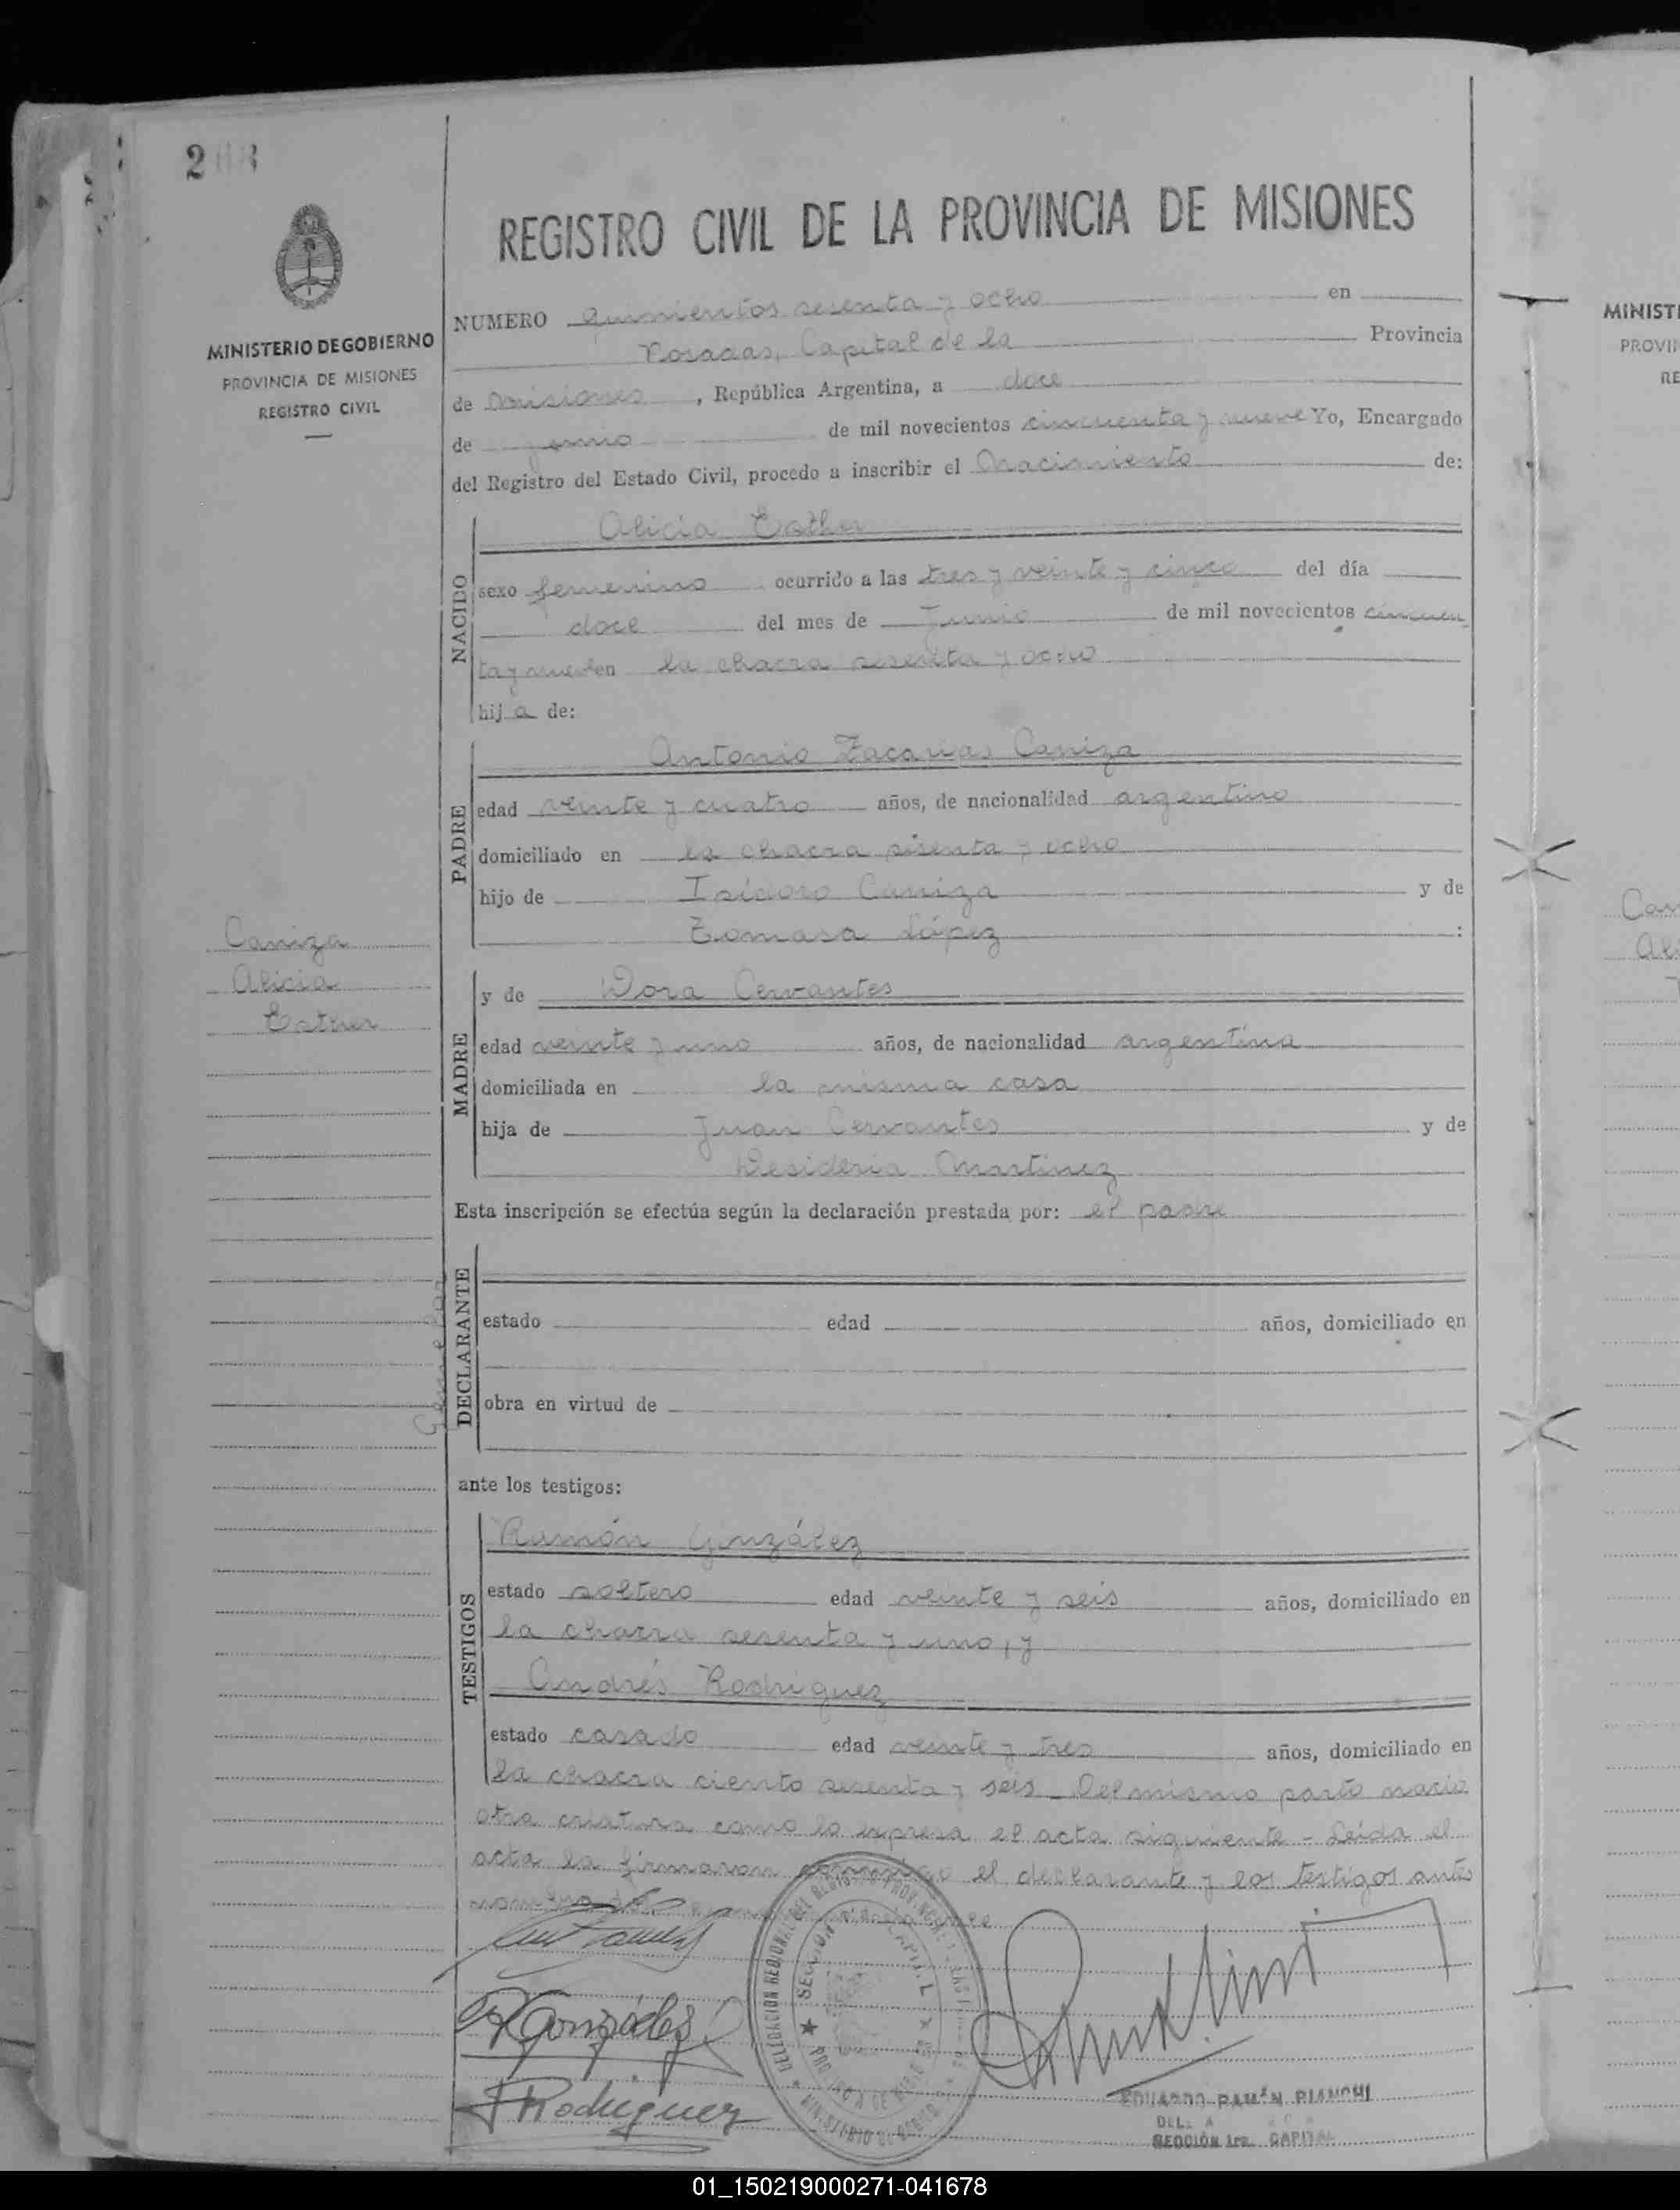 2
REGISTRO CIVIL DE LA PROVINCIA DE MISIONES
MINISTERIO DE GOBIERNO
PROVINCIA DE MISIONES
REGISTRO CIVIL
NUMERO quinientos sesenta y ocho en
Posadas, Capital de la Provincia
de Misiones, República Argentina, a doce
de junio de mil novecientos cincuenta y nueve Yo, Encargado
del Registro del Estado Civil, procedo a inscribir el Nacimiento de:
NACIDO
Alicia Esther
sexo femenino ocurrido a las tres y veinte y cinco del día
doce del mes de Junio de mil novecientos cincuen
ta y nueve en la chacra sesenta y ocho
hija de:
PADRE
Antonio Zacarias Caniza
edad veinte y cuatro años, de nacionalidad argentino
domiciliado en la chacra sesenta y ocho
hijo de Isidoro Caniza y de
Tomasa López :
Caniza
Alicia
Esther
MADRE
y de Dora Cervantes
edad veinte y uno años, de nacionalidad argentina
domiciliada en la misma casa
hija de Juan Cervantes y de
Desideria Martinez
Esta inscripción se efectúa según la declaración prestada por: el padre
DECLARANTE
estado edad años, domiciliado en
obra en virtud de
ante los testigos:
TESTIGOS
Ramón González
estado soltero edad veinte y seis años, domiciliado en
la chacra sesenta y uno, y
Andrés Rodriguez
estado casado edad veinte y tres años, domiciliado en
la chacra ciento sesenta y seis _ Del mismo parto nació
otra criatura como lo expresa el acta siguiente - Leída el
acta la firmaron conmigo el declarante y los testigos antes
R Gonzáles
A Rodriguez
SECCION
EDUARDO RAMÓN BIANCHI
SECCIÓN 1ra. CAPITAL
MINISTE
PROVIN
RE
Can
Al
01_150219000271-041678